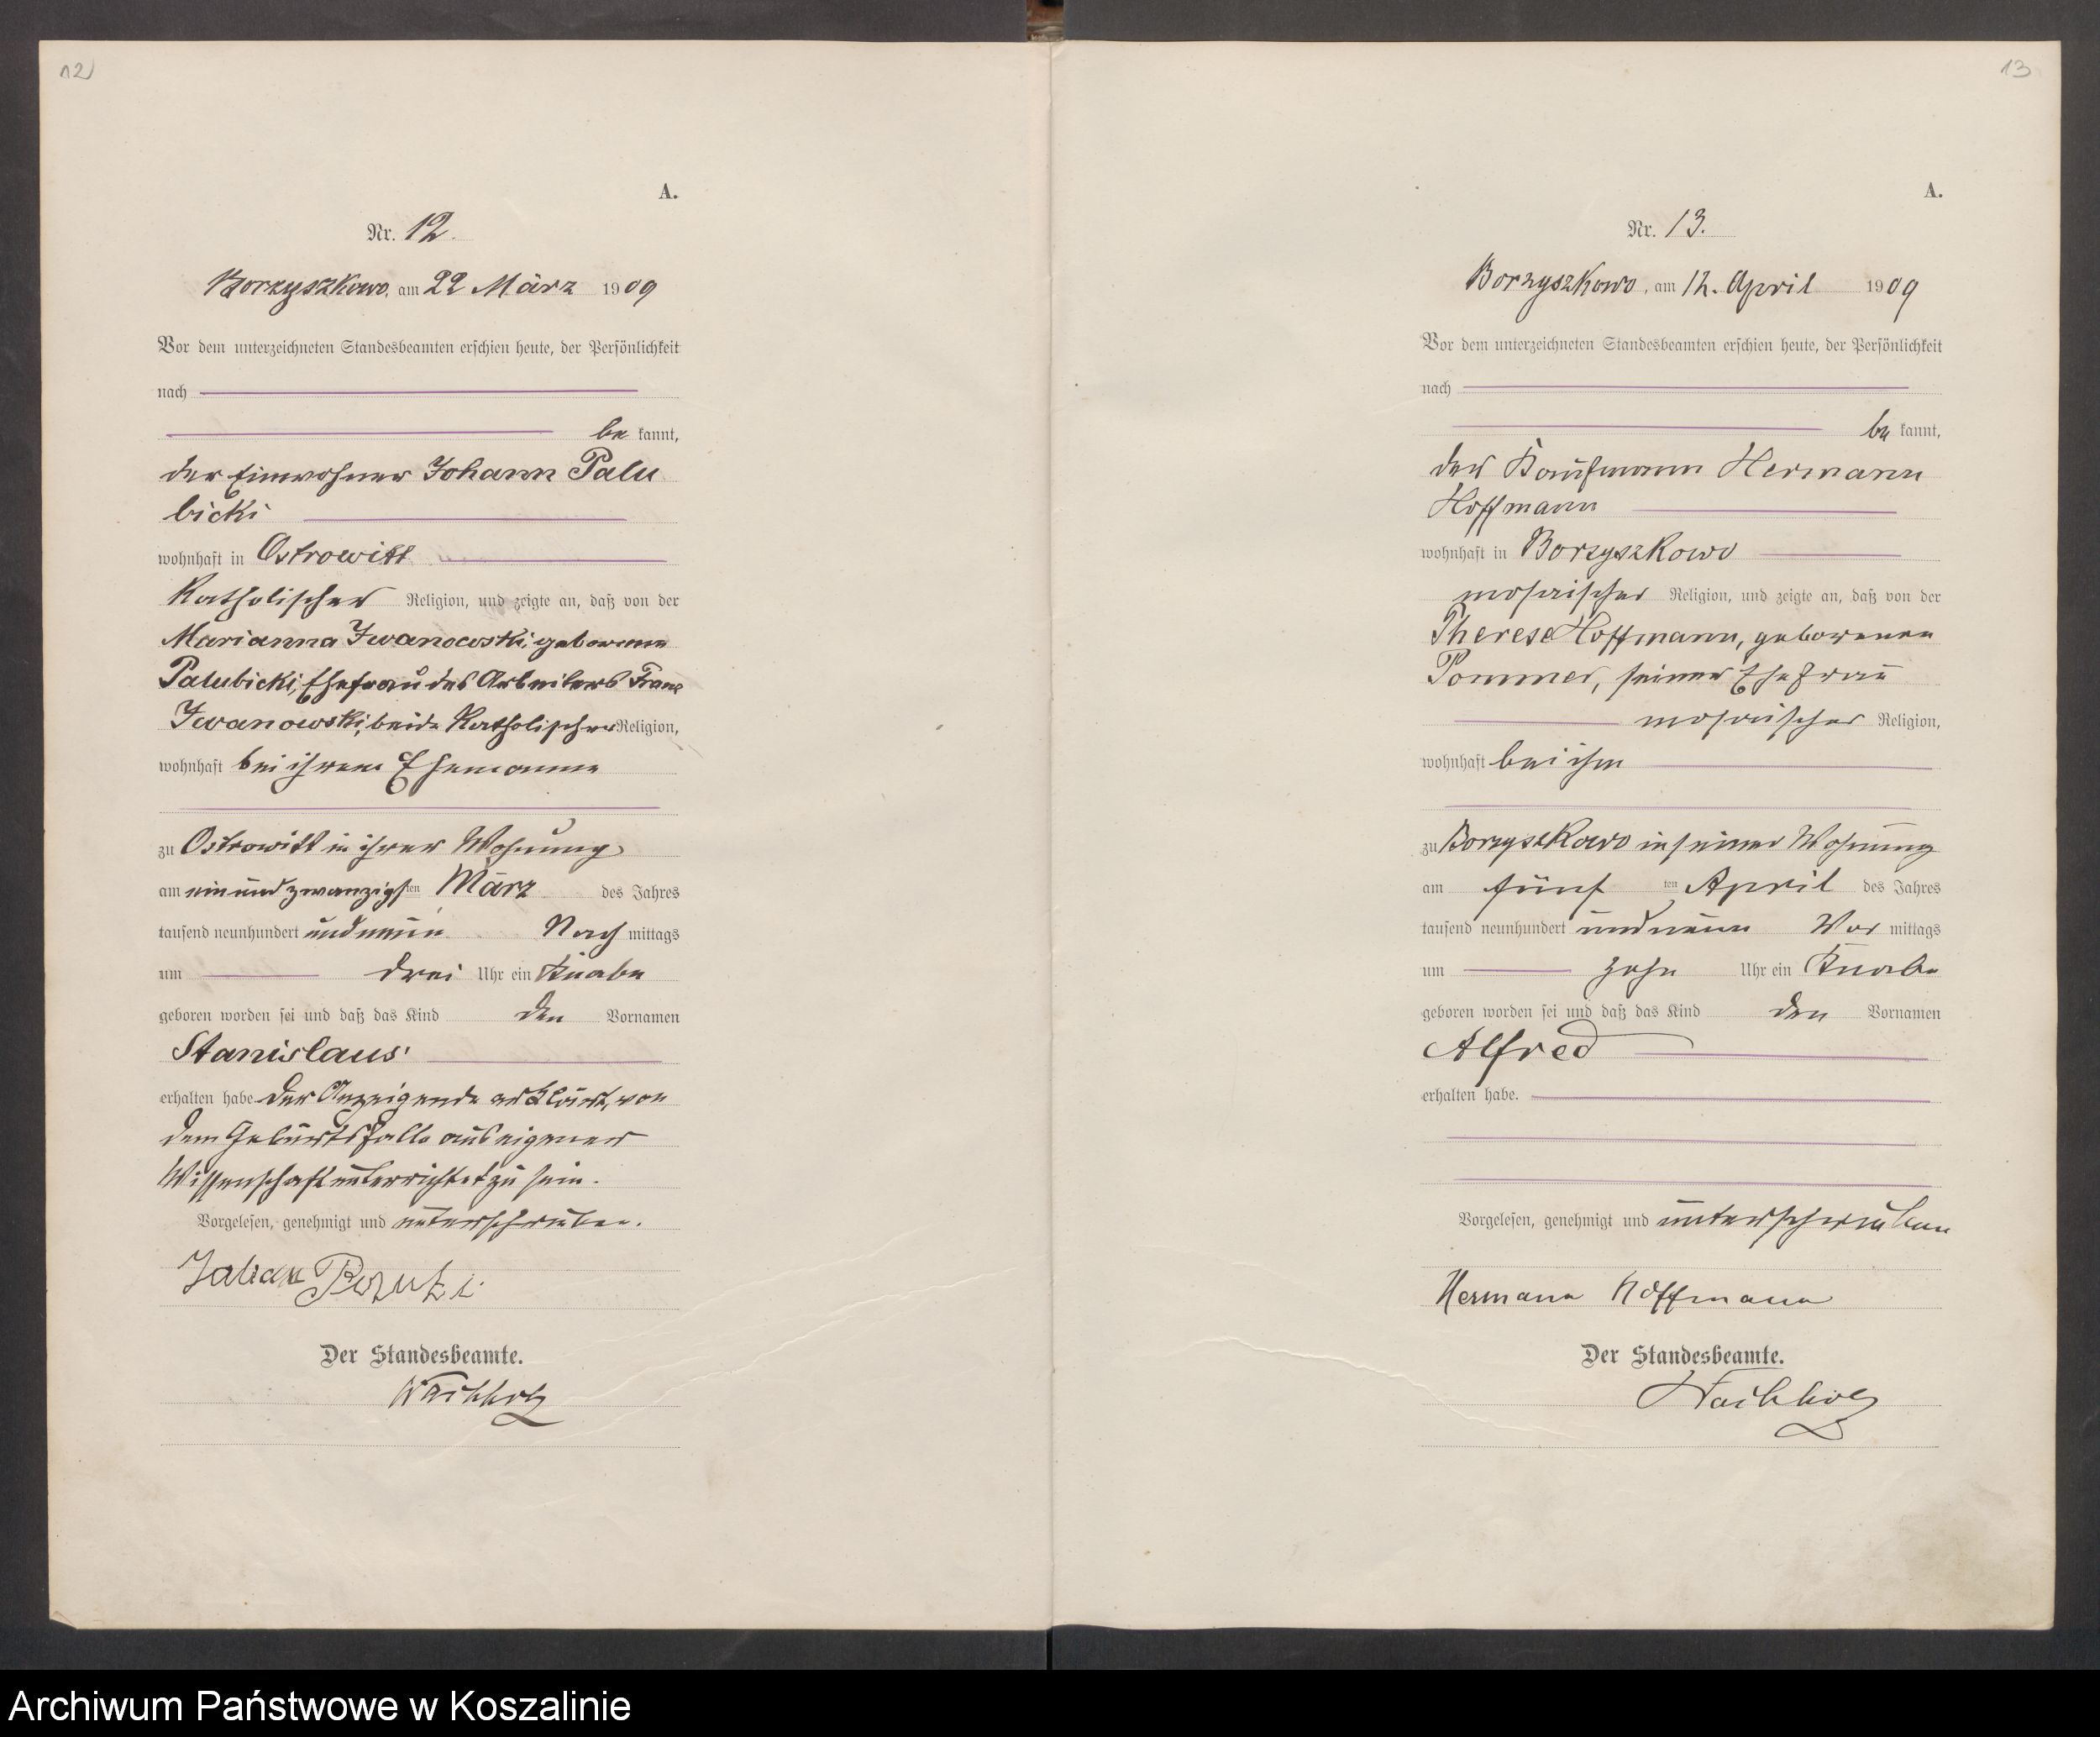 12
A.
Nr. 12.
Borzyszkowo, am 22 März 1909
Vor dem unterzeichneten Standesbeamten erschien heute, der Persönlichkeit
nach
be kannt,
der Einwohner Johann Palu
bicki
wohnhaft in Ostrowitt
katholischer Religion, und zeigte an, daß von der
Marianna Iwanowski, geborene
Palubicki, Ehefrau des Arbeiters Franz
Iwanowski, beide katholischer Religion,
wohnhaft bei ihrem Ehemanne
zu Ostrowitt in ihrer Wohnung
am ein und zwanzigsten März des Jahres
tausend neunhundert und neun Nach mittags
um drei Uhr ein Knabe
geboren worden sei und daß das Kind den Vornamen
Stanislaus
erhalten habe. Der Anzeigende erklärt, von
dem Geburtsfalle aus eigener
Wissenschaft unterrichtet zu sein.
Vorgelesen, genehmigt und unterschrieben.
Der Standesbeamte.
13
A.
Nr. 13.
Borzyszkowo, am 12. April 1909
Vor dem unterzeichneten Standesbeamten erschien heute, der Persönlichkeit
nach
be kannt,
der Kaufmann Hermann
Hoffmann
wohnhaft in Borzyszkowo
mosaischer Religion, und zeigte an, daß von der
Therese Hoffmann, geborenen
Pommer, seiner Ehefrau
mosaischer Religion,
wohnhaft bei ihm
zu Borzyszkowo in seiner Wohnung
am fünf ten April des Jahres
tausend neunhundert und neun Vor mittags
um zehn Uhr ein Knabe
geboren worden sei und daß das Kind den Vornamen
Alfred
erhalten habe.
Vorgelesen, genehmigt und unterschrieben
Hermann Hoffmann
Der Standesbeamte.
Archiwum Państwowe w Koszalinie